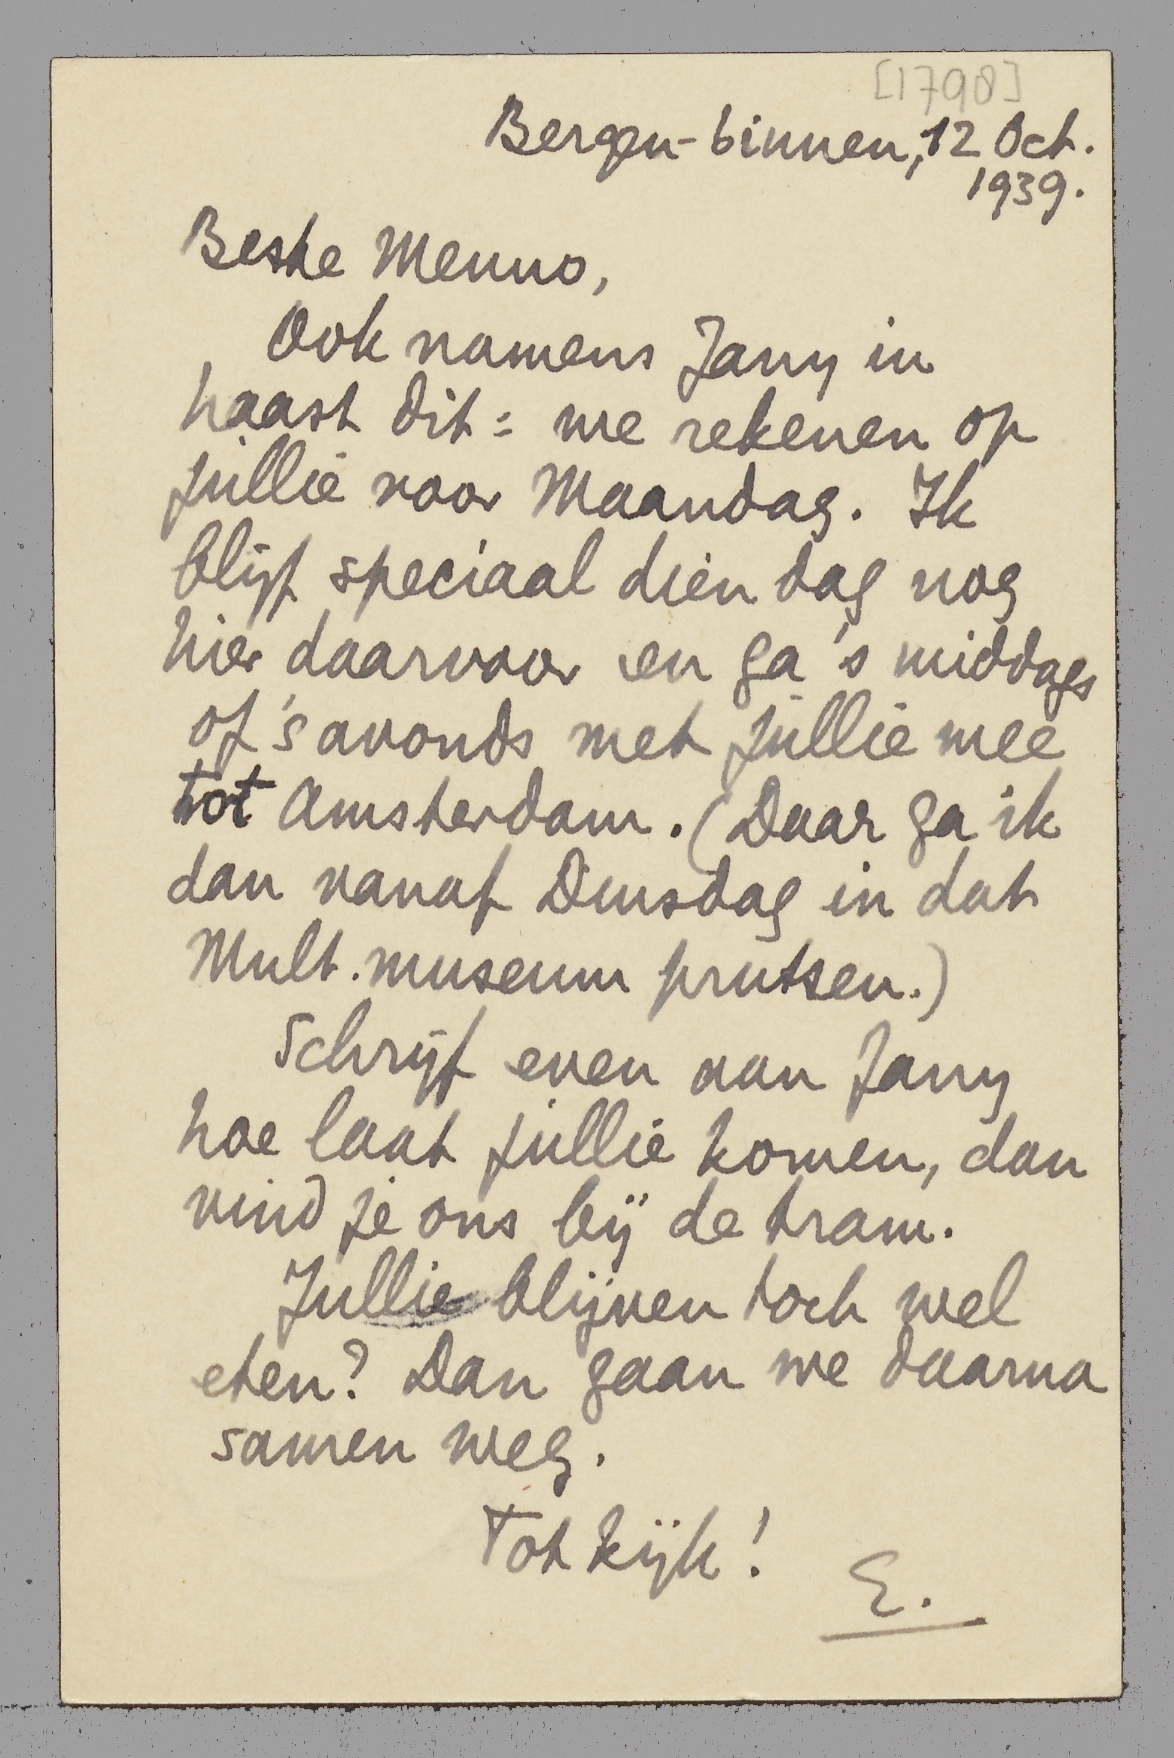 [1798]
Bergen-binnen, 12 Oct.
1939.
Beste Menno,
Ook namens Jany in
haast dit: we rekenen op
jullie voor Maandag. Ik
blijf speciaal dien dag nog
hier daarvoor en ga 's middags
of 's avonds met jullie mee
tot Amsterdam. (Daar ga ik
dan vanaf Dinsdag in dat
Mult. museum prutsen.)
Schrijf even aan Jany
hoe laat jullie komen, dan
vind je ons bij de tram.
Jullie blijven toch wel
eten? Dan gaan we daarna
samen weg.
Tot kijk!
E.